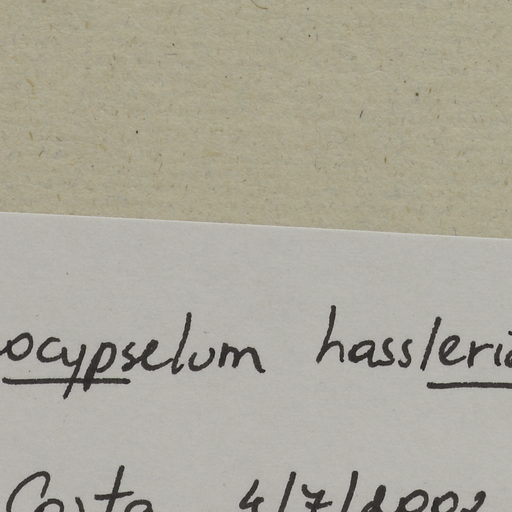 ocypselum hassleria
Costa 4/7/2002